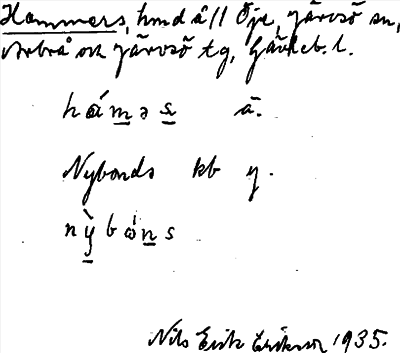 Hammers, hmd å // Öje, Järvsö sn,
Arbrå och Järvsö tg, Gävleb. l.
háməs ä.
Nybonds kb y.
nỳbóns
Nils Erik Eriksson 1935.